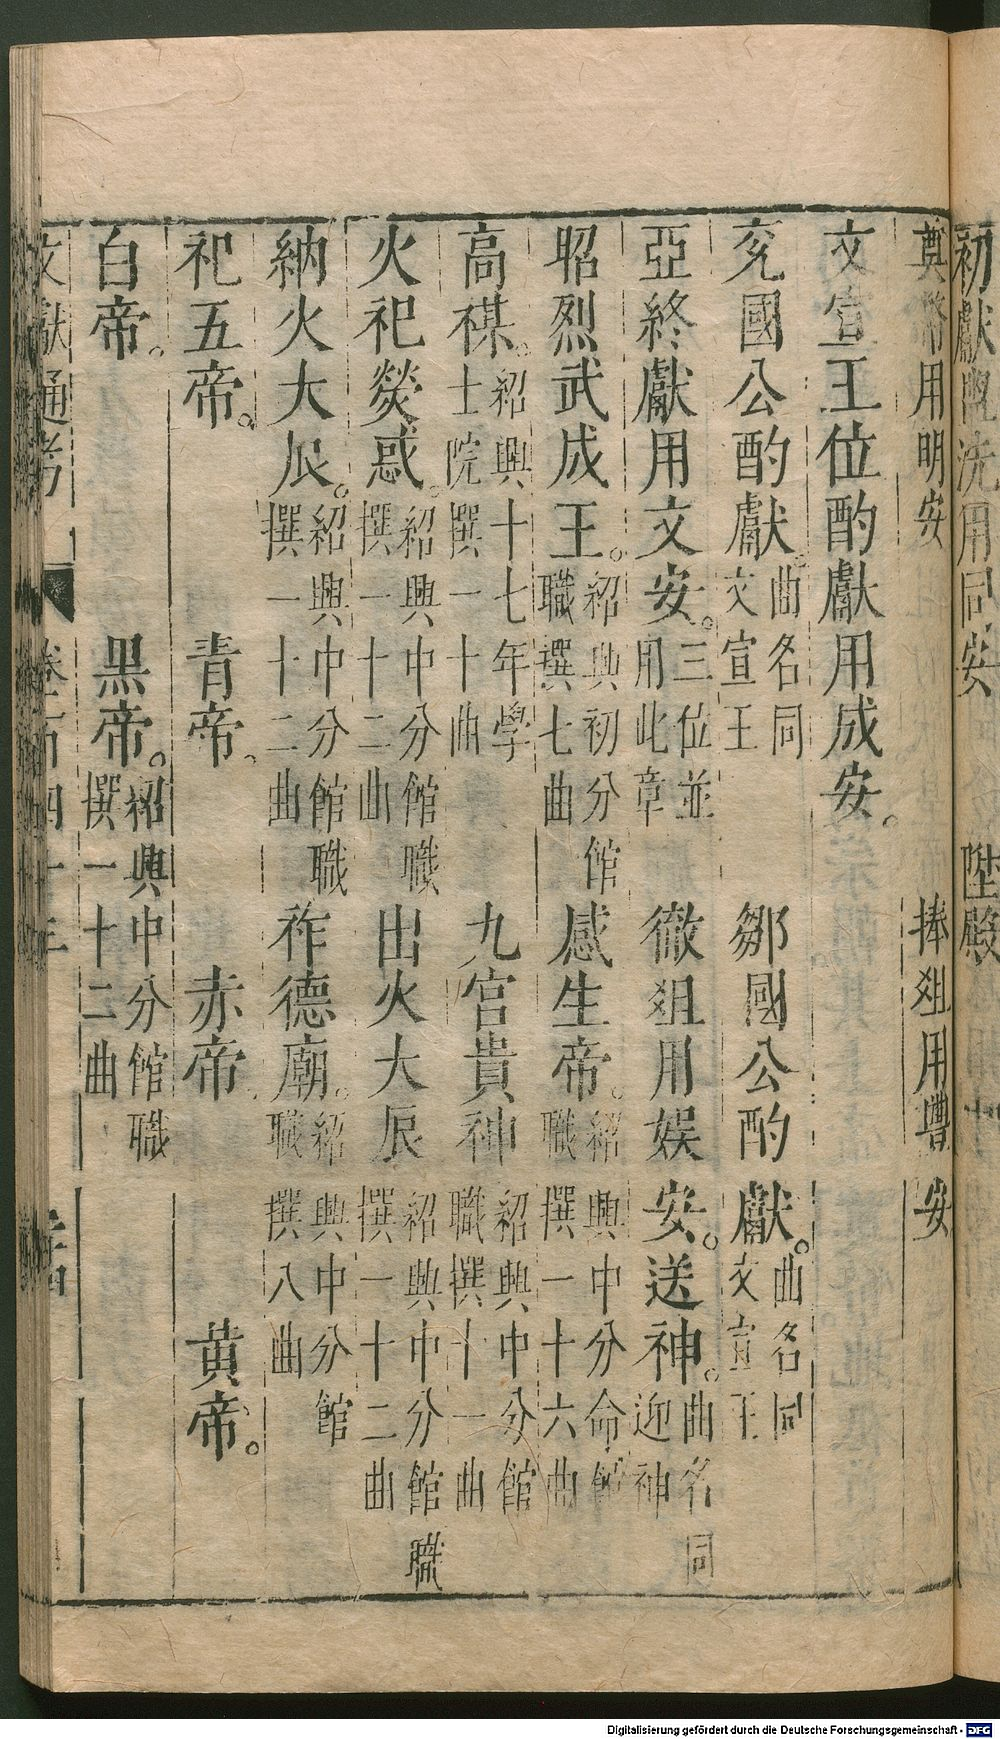 初獻盥洗用同安 陞殿
奠幣用明安 捧俎用豐安
文宣王位酌獻用成安。
兗國公酌獻。曲名同文宣王 鄒國公酌獻。曲名同文宣王
亞終獻用文安。三位並用此章 徹俎用娛安。送神。曲名同迎神
昭烈武成王。紹興初分館職撰七曲 感生帝。紹興中分命館職撰一十六曲
高禖。紹興十七年學士院撰一十曲 九宮貴神 紹興中分館職撰十一曲
火祀熒惑。紹興中分館職撰一十二曲 出火大辰 紹興中分館職撰一十二曲
納火大辰。紹興中分館職撰一十二曲 祚德廟。紹興中分館職撰八曲
祀五帝。 青帝。 赤帝 黃帝。
白帝。 黑帝。紹興中分館職撰一十二曲
文獻通考 卷一百四十三
Digitalisierung gefördert durch die Deutsche Forschungsgemeinschaft - DFG